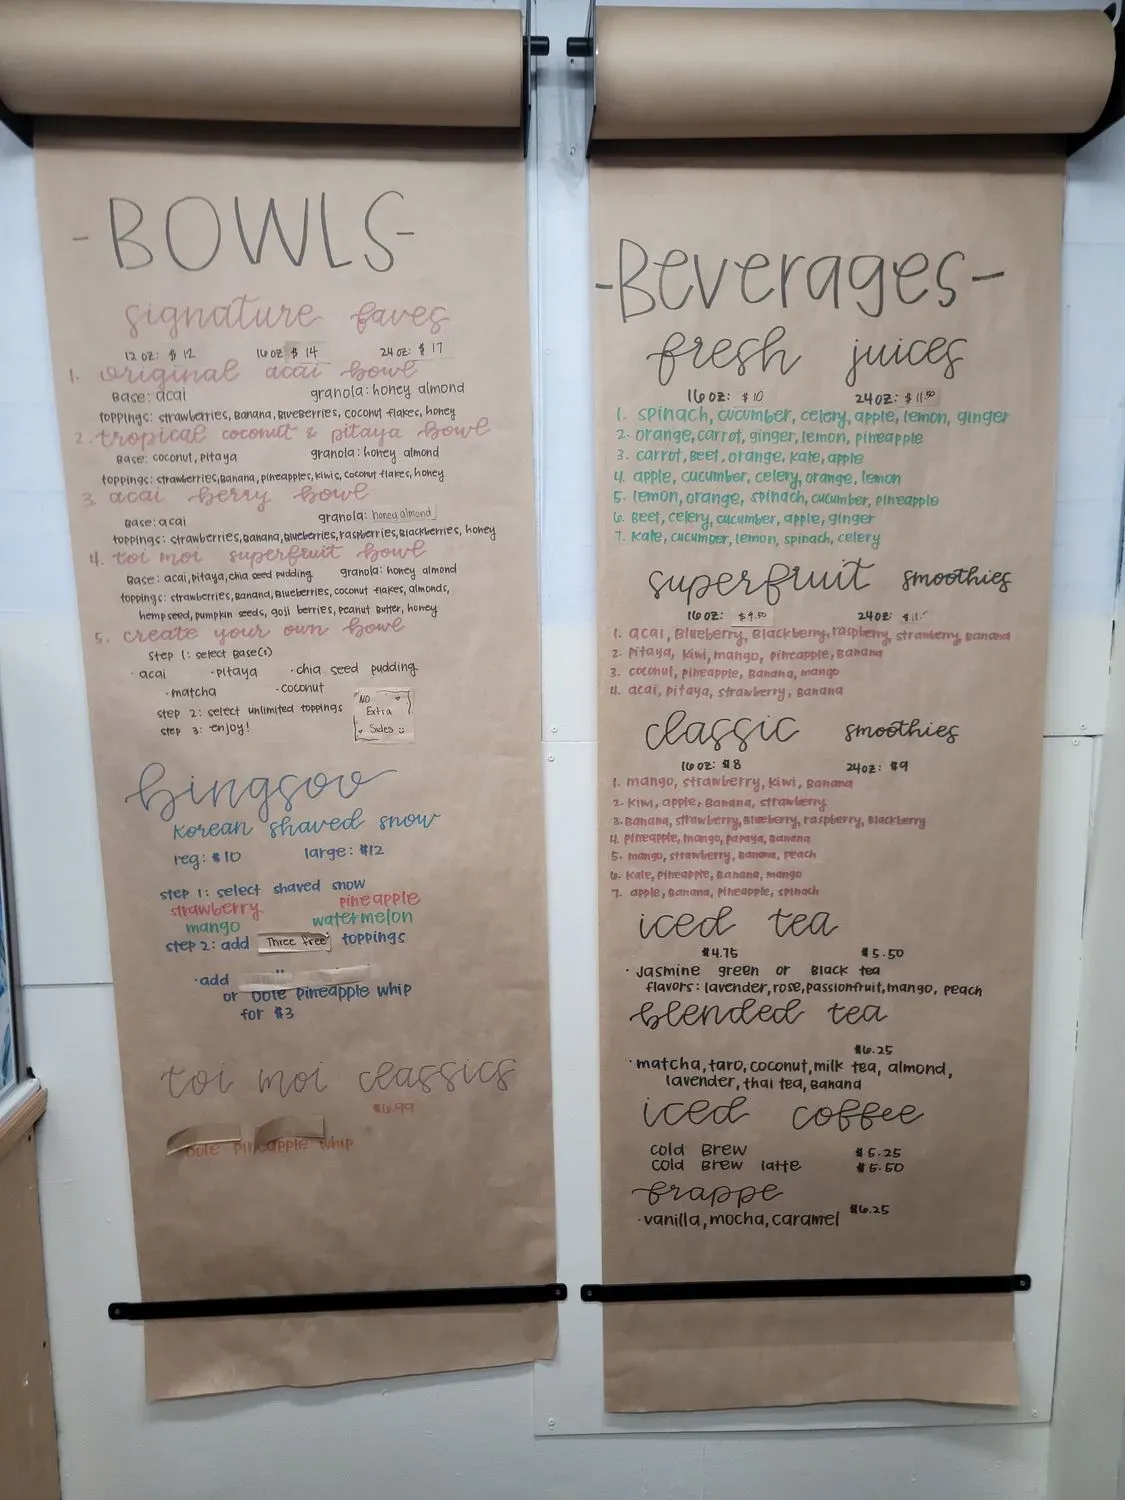 -BOWLS-
signature faves
12 oz: $ 12 16 oz $ 14 24 oz: $ 17
1. original acai bowl
Base: acai granola: honey almond
toppings: strawberries, Banana, Blueberries, coconut flakes, honey
2. tropical coconut & pitaya bowl
Base: coconut, pitaya granola: honey almond
toppings: strawberries, Banana, pineapples, kiwis, coconut flakes, honey
3. acai berry bowl
Base: acai granola: honey almond
toppings: strawberries, Banana, Blueberries, raspberries, Blackberries, honey
4. toi moi superfruit bowl
Base: acai, pitaya, chia seed pudding granola: honey almond
toppings: strawberries, Banana, Blueberries, coconut flakes, almonds,
hemp seed, pumpkin seeds, goji berries, peanut Butter, honey
5. create your own bowl
step 1: select Base(s)
· acai · pitaya · chia seed pudding
· matcha · coconut
step 2: select unlimited toppings
step 3: enjoy!
NO
Extra
Sides
bingsoo
korean shaved snow
reg: $10 large: $12
step 1: select shaved snow
strawberry pineapple
mango watermelon
step 2: add Three free toppings
· add
or Dole pineapple whip
for $3
toi moi classics
$6.99
Dole pineapple whip
-Beverages-
fresh juices
16 oz: $ 10 24 oz: $ 11.50
1. spinach, cucumber, celery, apple, lemon, ginger
2. orange, carrot, ginger, lemon, pineapple
3. carrot, Beet, orange, kale, apple
4. apple, cucumber, celery, orange, lemon
5. lemon, orange, spinach, cucumber, pineapple
6. Beet, celery, cucumber, apple, ginger
7. kale, cucumber, lemon, spinach, celery
superfruit smoothies
16 oz: $ 9.50 24 oz: $ 11
1. acai, Blueberry, Blackberry, raspberry, strawberry, Banana
2. pitaya, kiwi, mango, pineapple, Banana
3. coconut, pineapple, Banana, mango
4. acai, pitaya, strawberry, Banana
classic smoothies
16 oz: $8 24 oz: $9
1. mango, strawberry, kiwi, Banana
2. kiwi, apple, Banana, strawberry
3. Banana, strawberry, Blueberry, raspberry, Blackberry
4. pineapple, mango, papaya, Banana
5. mango, strawberry, Banana, peach
6. kale, pineapple, Banana, mango
7. apple, Banana, pineapple, spinach
iced tea
$4.75 $5.50
· Jasmine green or Black tea
flavors: lavender, rose, passionfruit, mango, peach
blended tea
$6.25
· matcha, taro, coconut, milk tea, almond,
lavender, thai tea, Banana
iced coffee
cold Brew $5.25
cold Brew latte $5.50
frappe
$6.25
· vanilla, mocha, caramel